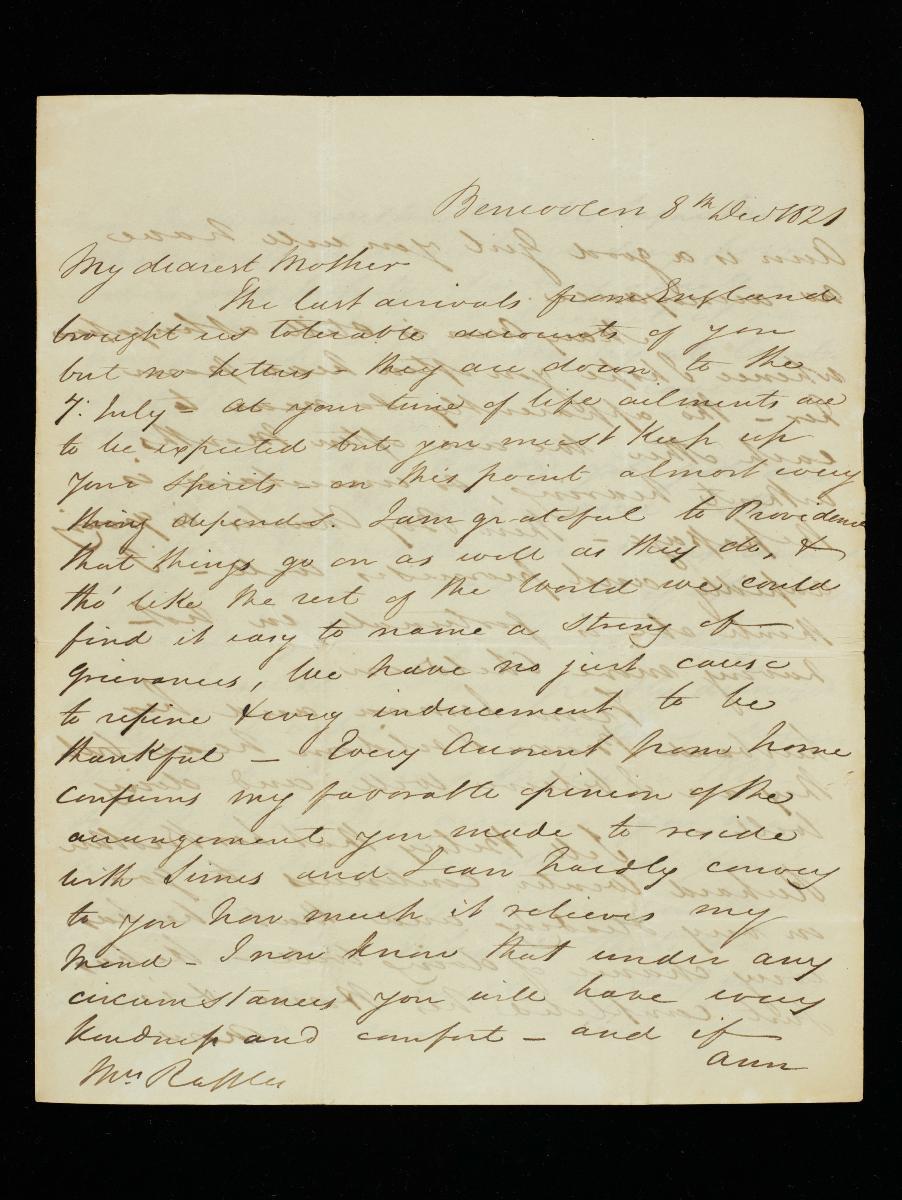 Bencoolen 8th Decr 1821
My dearest Mother
The last arrivals from England
brought us tolerable accounts of you
but no letters - they are down to the
7. July - at your time of life ailments are
to be expected but you must keep up
your spirits - on this point almost every
thing depends. I am grateful to Providence
that things go on as well as they do, &
tho' like the rest of the World we could
find it easy to name a string of
grievances, we have no just cause
to repine & every inducement to be
thankful - Every Account from home
confirms my favorable opinion of the
arrangement you made to reside
with Simes and I can hardly convey
to you how much it relieves my
mind - I now know that under any
circumstances you will have every
kindness and comfort - and if
Ann
Mrs Raffles